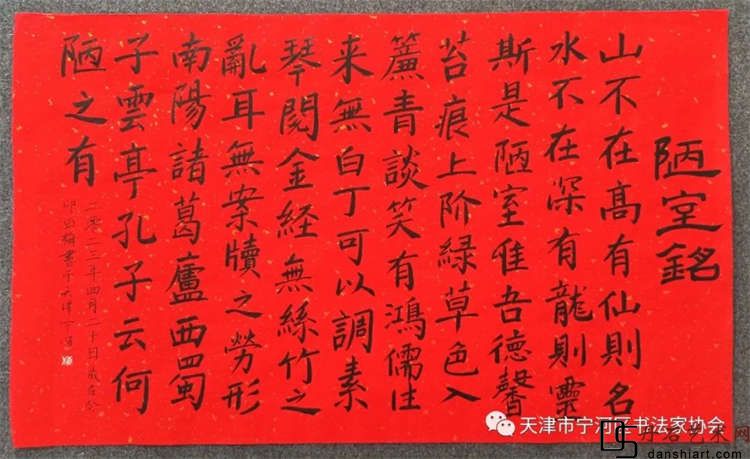 陋室銘
山不在高有仙則名
水不在深有龍則靈
斯是陋室惟吾德馨
苔痕上阶綠草色入
簾青談笑有鴻儒往
来無白丁可以調素
琴閱金経無絲竹之
亂耳無案牘之勞形
南陽諸葛廬西蜀
子雲亭孔子云何
陋之有
二零二三年四月二十日歲在
書于天津
天津市宁河区书法家协会
danshiart.com